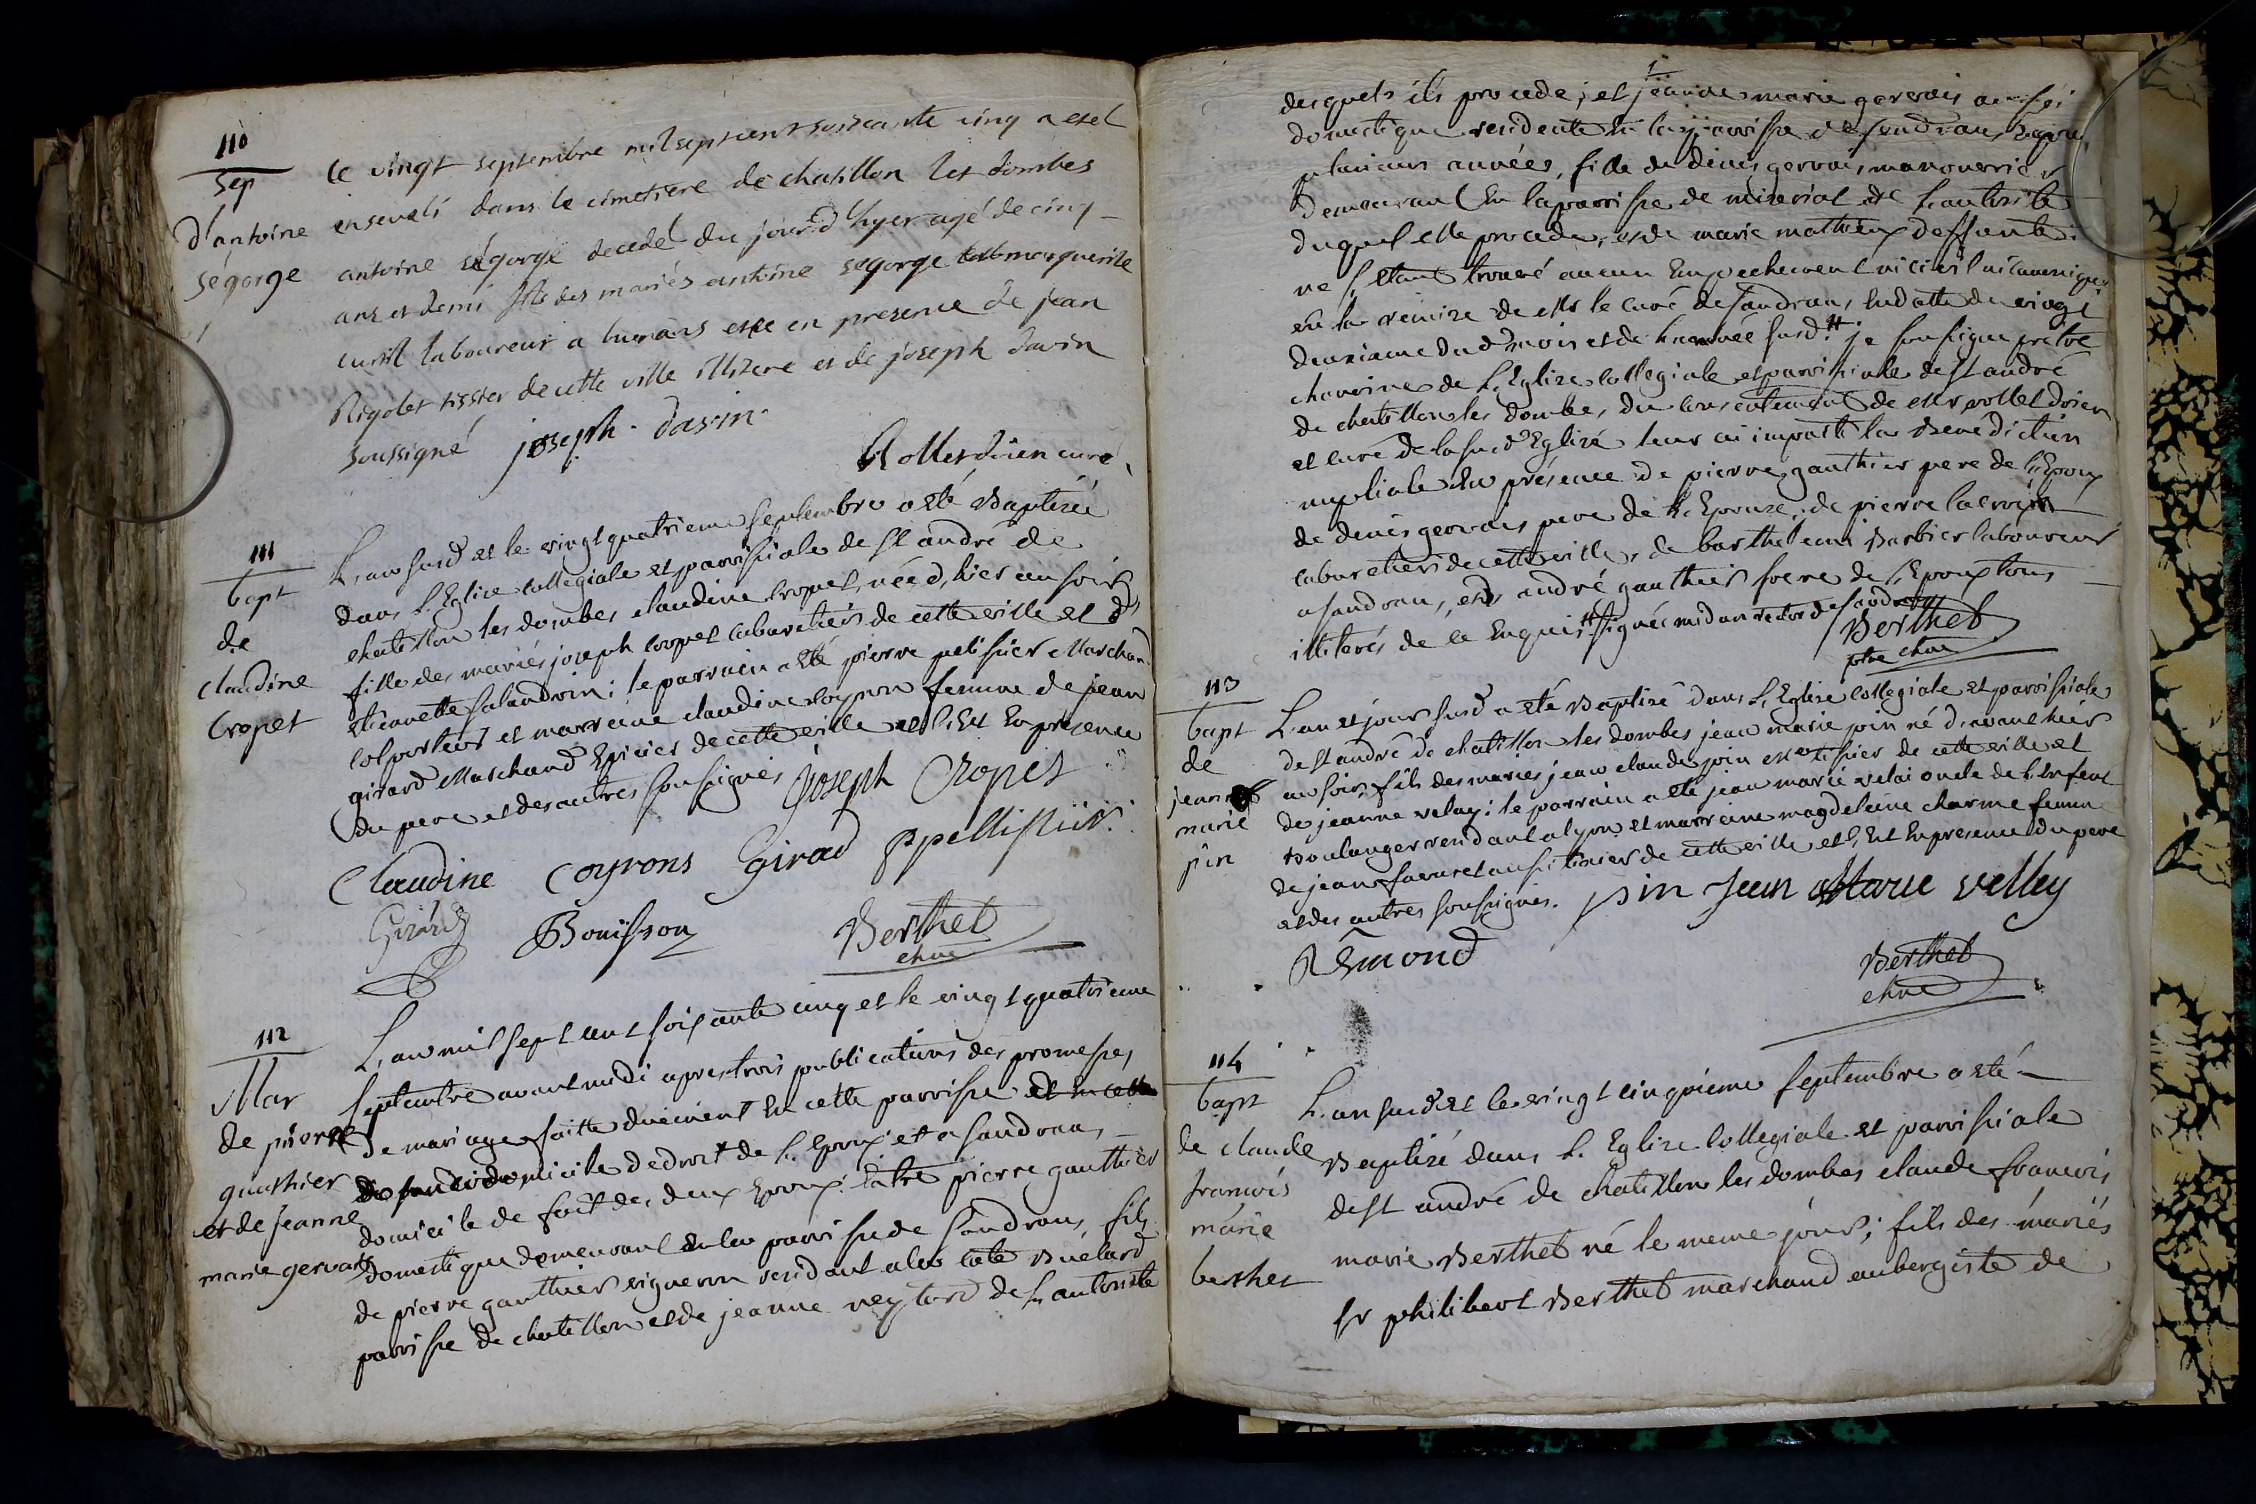 110
Sep
d'antoine
ségorge
le vingt septembre mil sept cent soixante cinq a eté
enseveli dans le cimetiere de chatillon les dombes
antoine ségorge decedé du jour d'hyer agé de cinq
ans et demi fils des mariés antoine segorge et marguerite
curvil laboureur a buenans et ce en presence de jean
Rigolet tissier de cette ville illitere et de joseph davin
soussigné joseph davin
Vollet doien curé
111
bapt
de
claudine
cropet
L'an susd et le vingt quatrieme septembre a eté Baptizée
dans L'Eglise collegiale et parroissiale de st andré de
chatillon les dombes claudine cropet, née d'hier au soir
fille des mariés joseph cropet cabaretier de cette ville et d
etiennette salandrin; le parrain a eté pierre pelissier Marchand
colporteur et marraine claudine coyron femme de jean
girard Marchand Epicier de cette ville et c'Est En presence
du pere et des autres soussignés Joseph Cropet
Claudine Coyrons Girad P pellissiir
Girard Bouisson Berthet
chne
112
Mar
de pierre
gauthier
et de jeanne
marie gervais
L'an mil sept cent soixante cinq et le vingt quatrieme
septembre avant midi apres trois publications des promesses
de mariage faitte duement En cette parroisse et En celle
de sandrans domicile de droit de L'Epoux et a sandrans
domicile de fait des deux Epoux. Entre pierre gauthier
domestique demeurant En la parroisse de sandrans, fils
de pierre gauthier vigneron residant a la cote Buelard
parroisse de chatillon et de jeanne neytard de L'autorité
desquels ils procede; et jeanne marie gervais aussi
domestique residente En la parroisse de sandrans depuis
plusieurs années, fille de denis gervais manouvrier
demeurant En la parroisse de miserial de L'autorité
duquel elle procede, et de marie mathieux deffunte
ne s'etant trouvé aucun Empechement ni civil ni canonique
vû la remise de Mr le curé de sandrans En datte du vingt
deuxieme dud mois et de L'année susdtt je soussigné prêtre
chanoine de L'Eglise collegiale et parroissiale de st andré
de chatillon les dombes, du consentement de Mr vollet doien
et curé de la susd Eglise leur ai imparti la Benediction
nuptiale En présence de pierre gauthier pere de L'Epoux
de denis gervais pere de L'Epouze, de pierre lacroix
cabaretier de cette ville, de barthelemi Barbier laboureur
a sandrans, et d'andré gauthier frere de L'Epoux tous
illiterés de ce Enquis signé midan rector de sandrans
Berthet
ptre chne
113
bapt
de
jean
marie
pin
L'an et jour susd a eté Baptizé dans L'Eglise collegiale et parroissiale
de st andré de chatillon les dombes jean marie pin né d'avant hier
au soir, fils des mariés jean claude pin Me tissier de cette ville et
de jeanne velay: le parrain a eté jean marie velai oncle de L'Enfent
Boulanger residant a lyon et marraine magdelaine charme femme
de jean favaret aussi tissier de cette ville et c'Est En presence du pere
et des autres soussignés. pin Jean Marie velley
Rémond
Berthet
chne
114
bapt
de claude
francois
marie
berthet
L'an susd et le vingt cinquieme septembre a eté
Baptizé dans L'Eglise Collegiale et parroissiale
de st andré de chatillon les dombes claude francois
marie Berthet né le meme jour; fils des mariés
sr philibert Berthet marchand aubergiste de